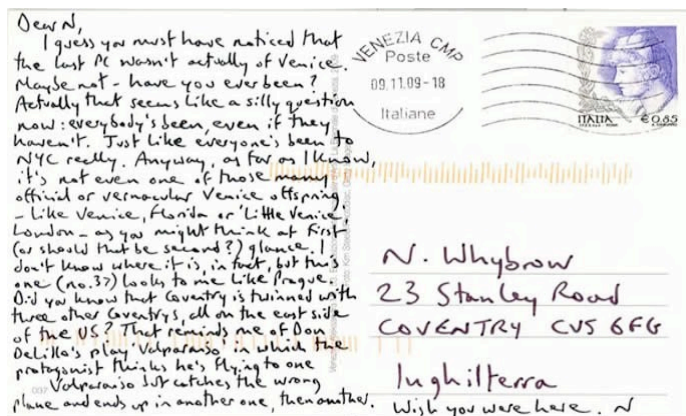 Dear N,
I guess you must have noticed that
the last PC wasn't actually of Venice
Maybe not - have you ever been?
Actually that seems like a silly question
now: everybody's been, even if they
haven't. Just like everyone's been to
NYC really. Anyway, as far as I know,
it's not even one of those many
official or vernacular Venice offspring.
- Like Venice, Florida or 'Little Venice',
London - as you might think at first
(or should that be second?) glance. I
don't know where it is, in fact, but this
one (no.37) looks to me like Prague.
Did you know that Coventry is twinned with
three other Coventrys, all on the east side
of the US? That reminds me of Don
DeLillo's play Valparaiso in which the
protagonist thinks he's flying to one
Valparaiso but catches the wrong
plane and ends up in another one, then another.
VENEZIA CMP
Poste
09.11.09-18
Italiane
ITALIA
€0,85
N. Whybrow
23 Stanley Road
COVENTRY CV5 6FG
Inghilterra
Wish you were here. N
037